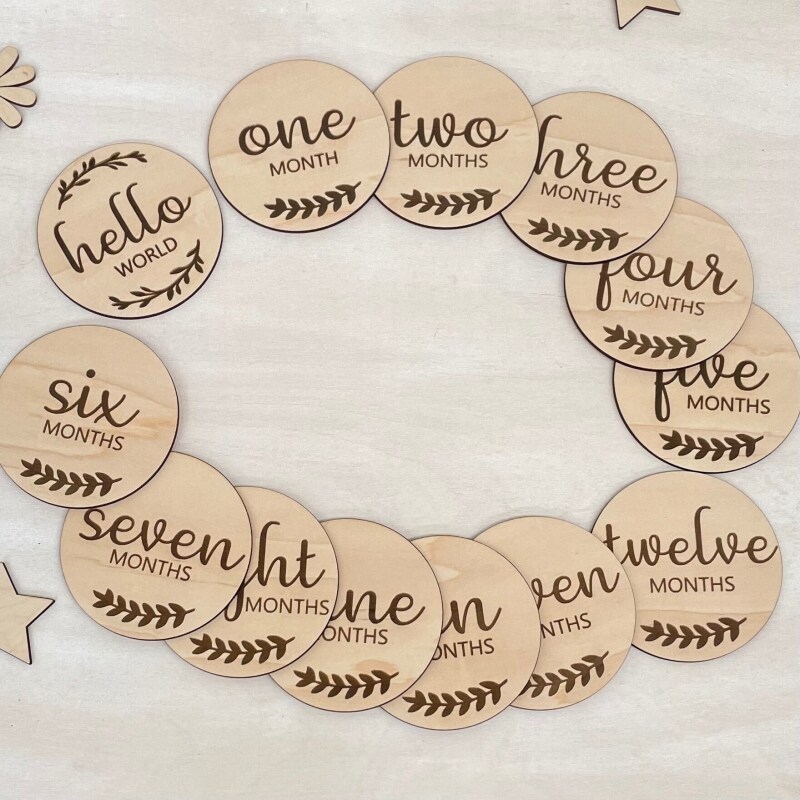 hello
WORLD
one
MONTH
two
MONTHS
hree
MONTHS
four
MONTHS
five
MONTHS
six
MONTHS
seven
MONTHS
ght
MONTHS
ne
ONTHS
n
ONTHS
ven
NTHS
twelve
MONTHS